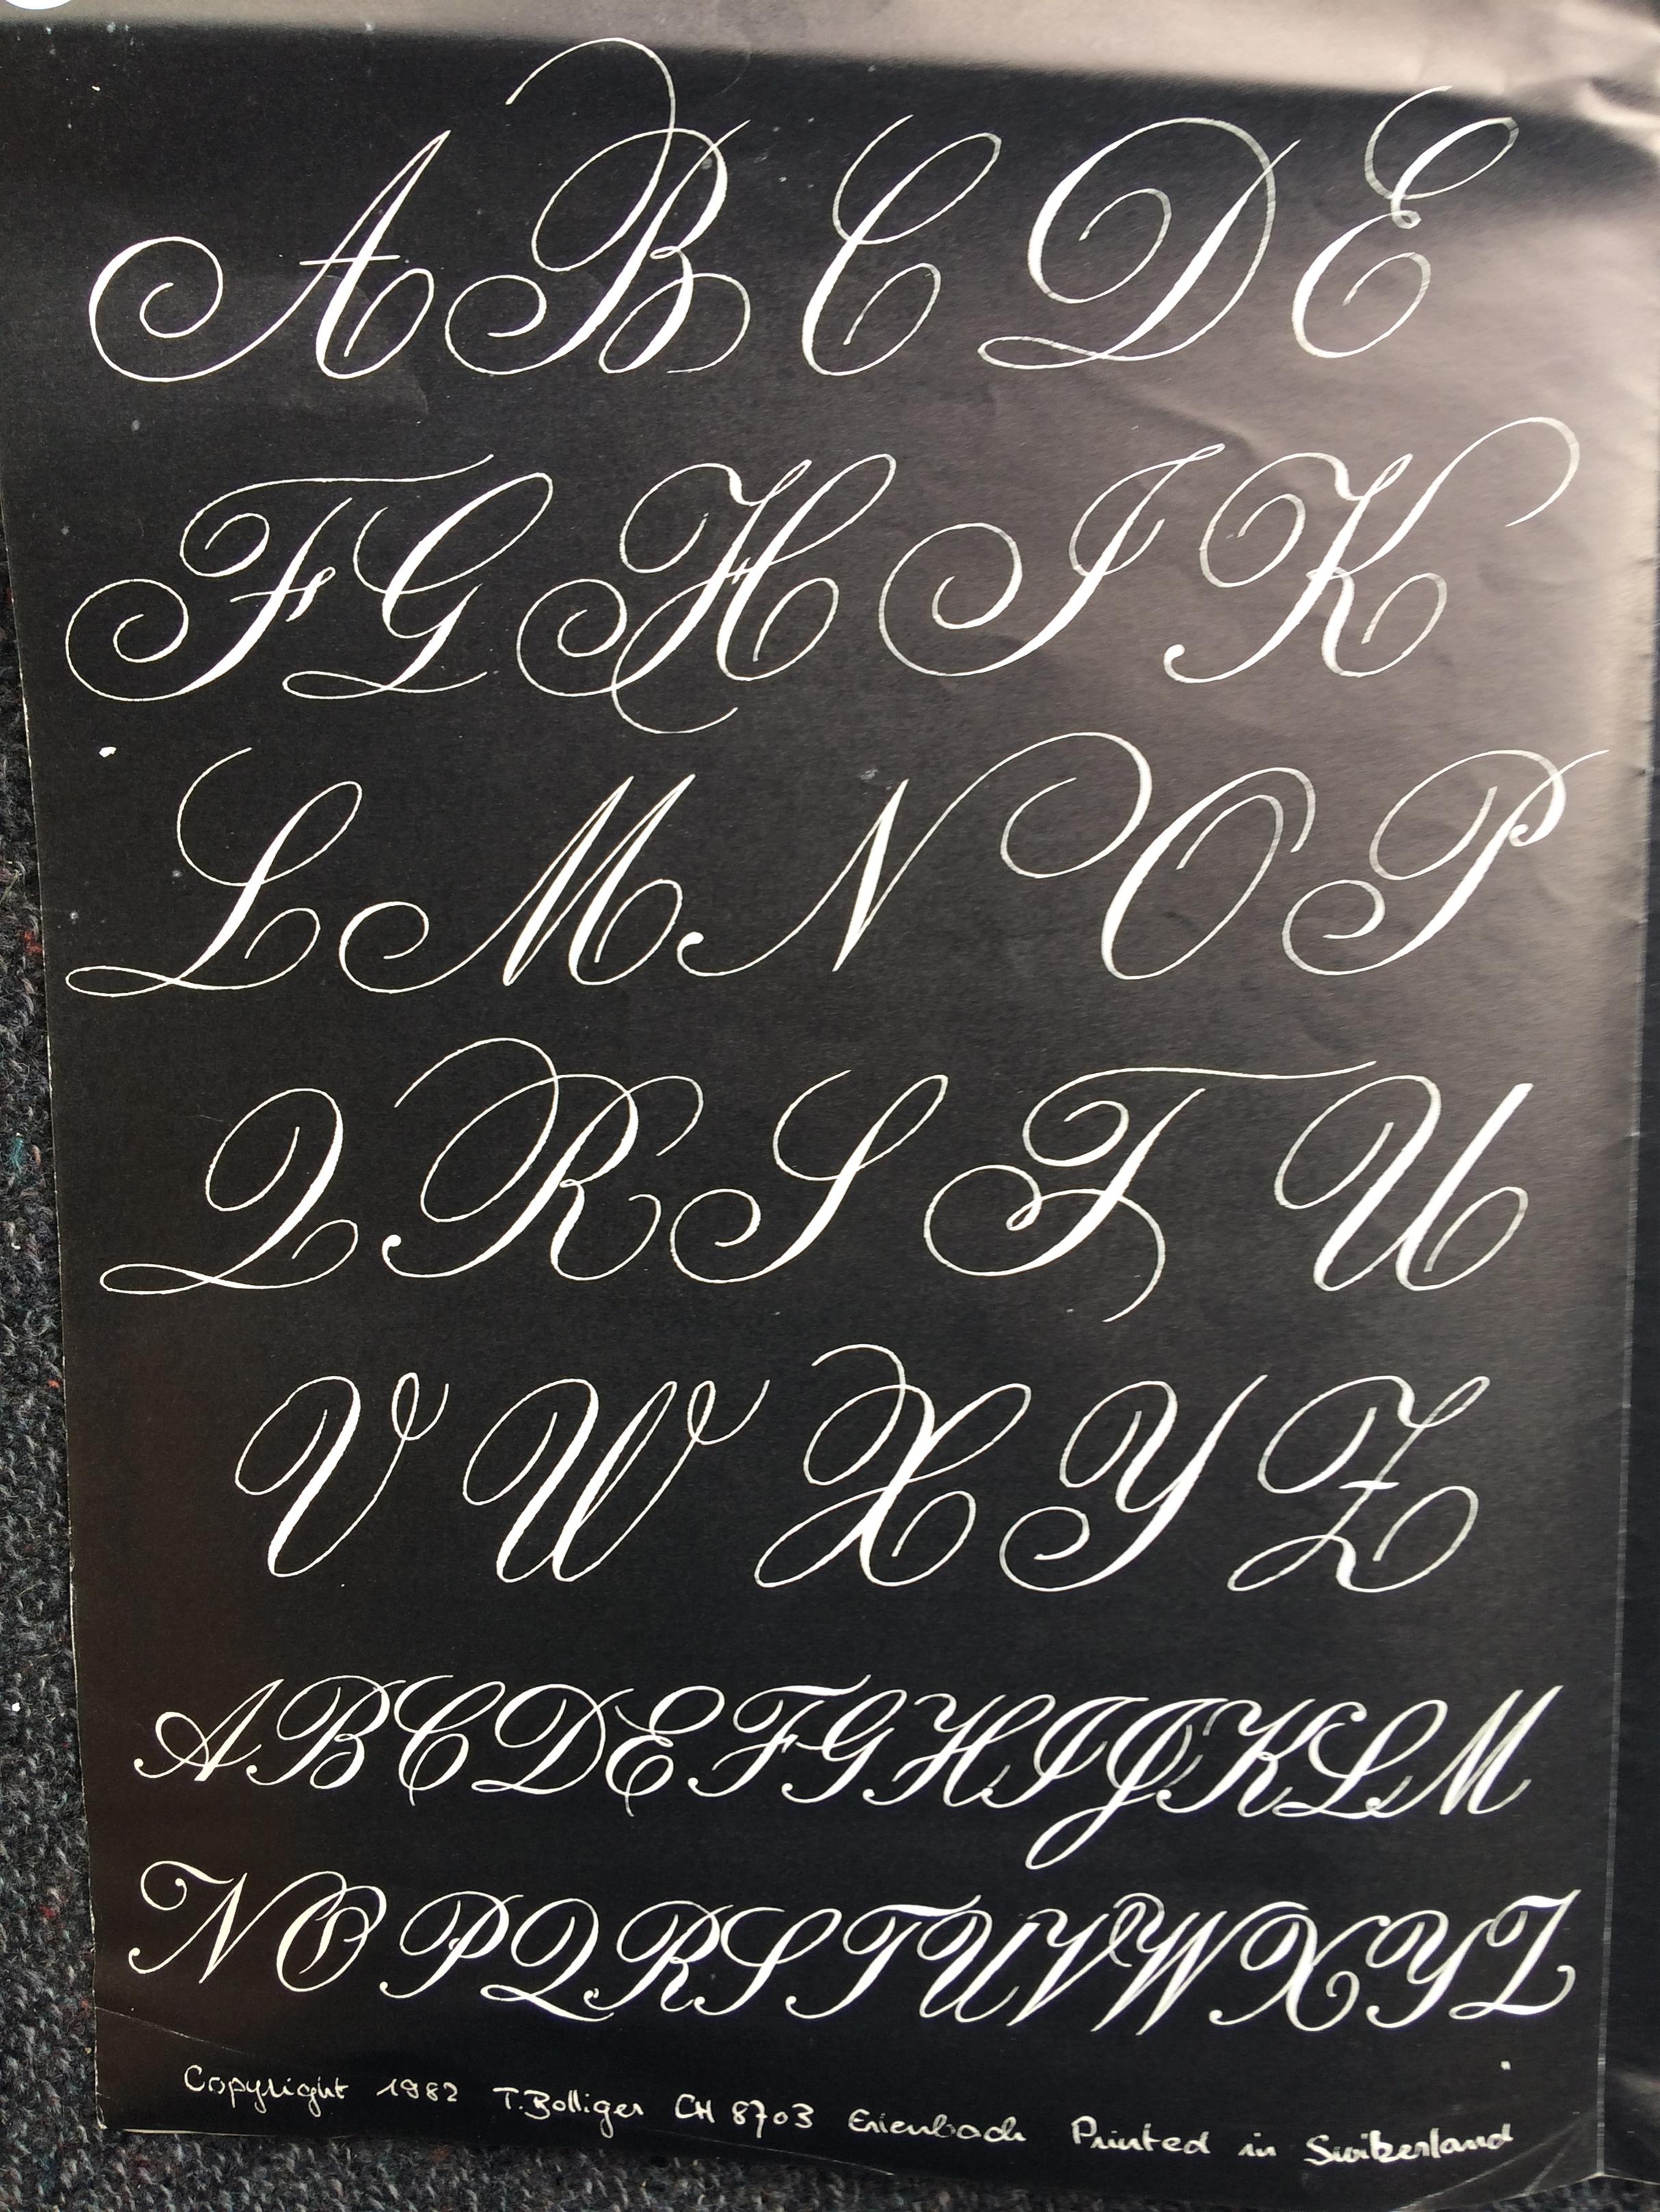 A B C D E
F G H I K
L M N O P
Q R S T U
V W X Y Z
A B C D E F G H I J K L M
N O P Q R S T U V W X Y Z
Copyright 1982 T. Bolliger CH 8703 Erlenbach Printed in Switzerland